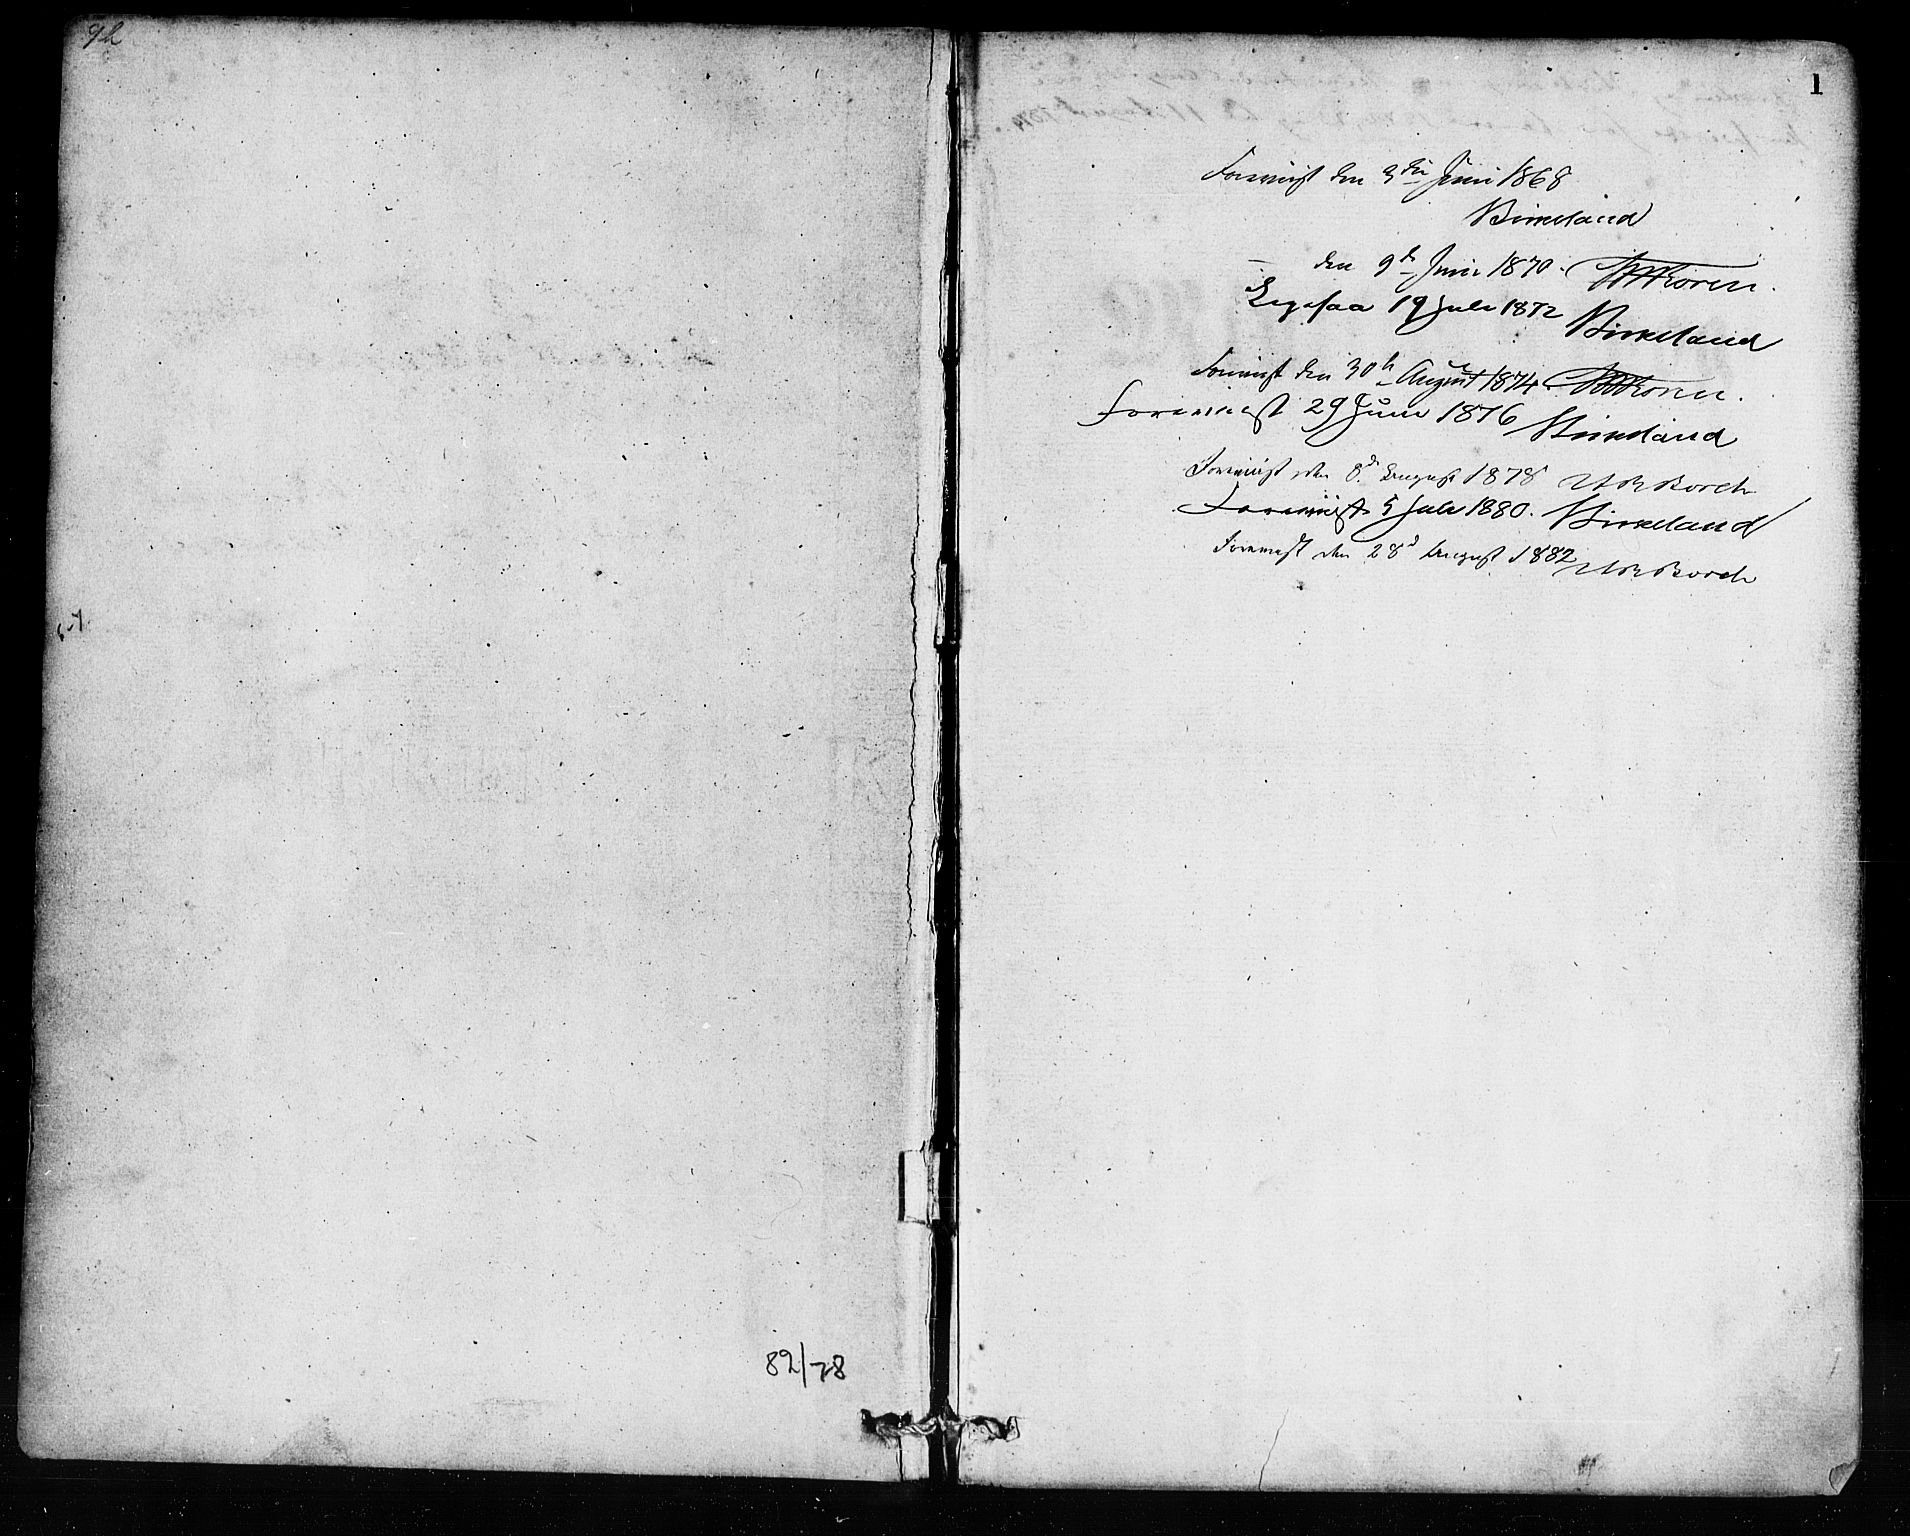 82/78
1
Forevist den 3die Juni 1868
Birkeland
— den 9d Juni 1870. Koren.
Ligesaa 19 Juli 1872 Birkeland
Forevist den 30te August 1874. Koren.
Forevist 29 Juni 1876 Birkeland
Forevist den 8d August 1878 Borch
Forevist 5 Juli 1880. Birkeland
Forevist den 28d August 1882 Borch